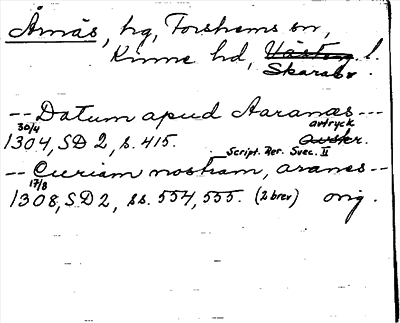 Årnäs, hg, Forshems sn,
Kinne hd, Västerg. l.
Skarab.
-- Datum apud Aaranæs ---
30/4 avtryck
1304, SD 2, s. 415. avskr.
Script. Rer. Svec. II
-- Curiam nostram, aranes --
17/8
1308, SD 2, ss. 554, 555. (2 brev) orig.